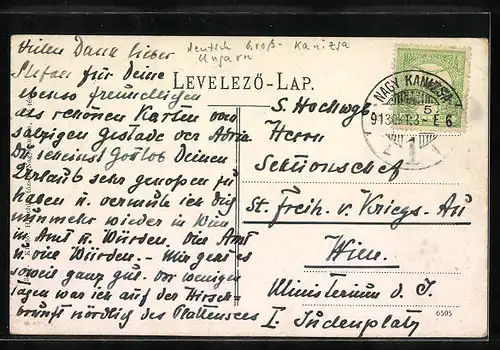 deutsch Groß-Kanizsa
Ungarn
Vielen Dank lieber
Stefan für Deine
ebenso freundlichen
als schönen Karten vom
salzigen Gestade der Adria.
Du scheinst Gottlob Deinen
Urlaub sehr genossen zu
haben u. vermute ich Dich
nunmehr wieder in Wien
in Amt u. Würden. Ohne Amt
u. ohne Würden. - Mir geht es
soweit ganz gut. Vor wenigen
Tagen war ich auf der Hirsch-
brunft nördlich des Plattensees
LEVELEZŐ-LAP.
NAGY KANIZSA
5
913 OKT. 3 - E 6
1
S. Hochwgb.
Herrn
Sektionschef
St. Freih. v. Kriegs-Au
Wien.
Ministerium d. I.
I. Judenplatz
6595